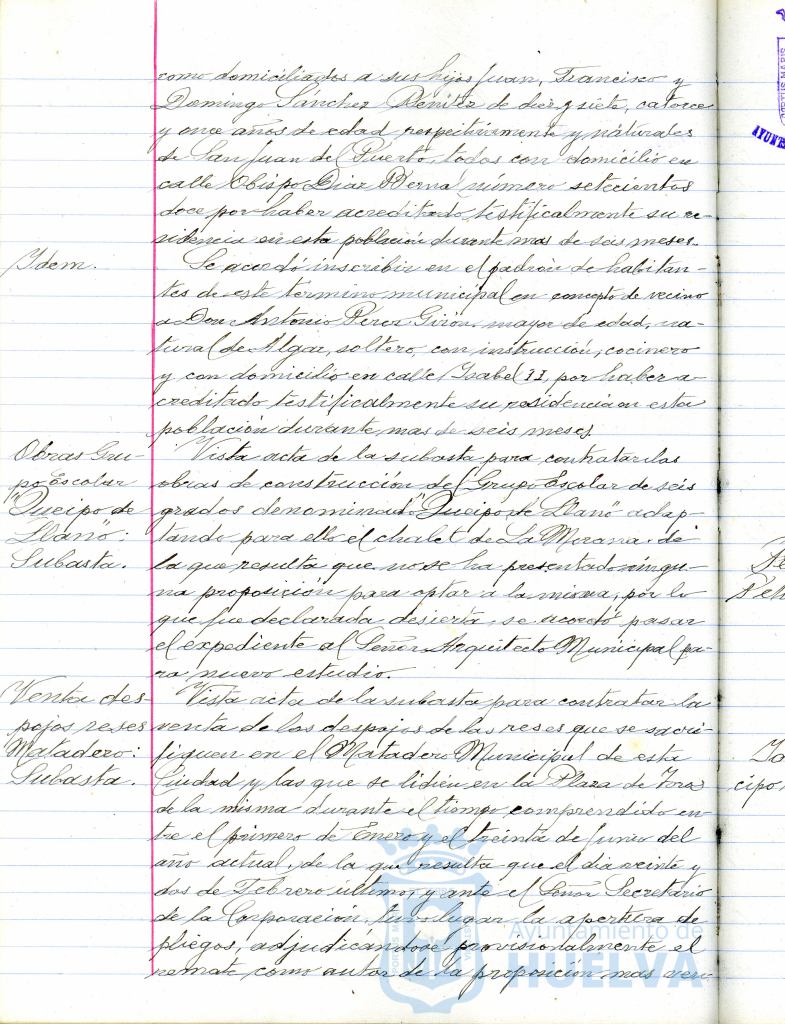 como domiciliados a sus hijos Juan, Francisco y
Domingo Sánchez Benitez de diez y siete, catorce
y once años de edad respectivamente y naturales
de San Juan del Puerto, todos con domicilio en
calle Obispo Diaz Bernal número setecientos
doce por haber acreditado testificalmente su re-
sidencia en esta población durante mas de seis meses.
Idem.
Se acordó inscribir en el padrón de habitan-
tes de este término municipal en concepto de vecino
a Don Antonio Perez Girón, mayor de edad, na-
tural de Algar, soltero, con instrucción, cocinero
y con domicilio en calle Isabel II, por haber a-
creditado testificalmente su residencia en esta
población durante mas de seis meses.
Obras Gru-
po Escolar
"Queipo de
Llano":
Subasta.
Vista acta de la subasta para contratar las
obras de construcción del Grupo Escolar de seis
grados denominado "Queipo de Llano" adap-
tando para ello el chalet de La Morana, de
la que resulta que no se ha presentado ningu-
na proposición para optar a la misma, por lo
que fue declarada desierta, se acordó pasar
el expediente al Señor Arquitecto Municipal pa-
ra nuevo estudio.
Venta des-
pojos reses
Matadero:
Subasta.
Vista acta de la subasta para contratar la
venta de los despojos de las reses que se sacri-
fiquen en el Matadero Municipal de esta
Ciudad y las que se lidien en la Plaza de Toros
de la misma durante el tiempo comprendido en-
tre el primero de Enero y el treinta de Junio del
año actual, de la que resulta que el dia veinte y
dos de Febrero ultimo, y ante el Señor Secretario
de la Corporación, tuvo lugar la apertura de
pliegos, adjudicándose provisionalmente el
remate como autor de la proposición mas ven-
Ayuntamiento de
HUELVA